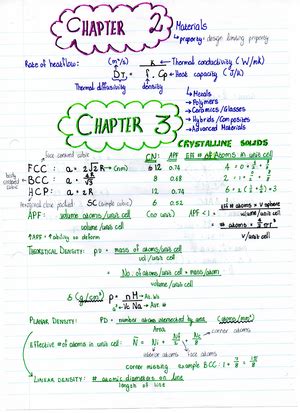 CHAPTER 2 Materials
↳ property: design limiting property
Rate of heatflow: (m²/s) K → Thermal conductivity (W/mk)
D_T = ρ . Cp → Heat capacity (J/k)
Thermal diffusivity density
↳ Metals
→ Polymers
→ Ceramics/Glasses
→ Hybrids/Composites
→ Advanced Materials
CHAPTER 3
CRYSTALLINE SOLIDS
face centered cubic CN: APF: Eff # of Atoms in unit cell
FCC: a = 2√2 R → (nm) 12 0.74
BCC: a = 4R/√3 8 0.68
HCP: a = 2R 12 0.74
SC (simple cubic) 6 0.52
APF: volume atoms/unit cell
volume/unit cell
(no units) APF < 1 =
↑APF = ↑ability to deform
THEORETICAL DENSITY: ρ = mass of atoms/unit cell
vol/unit cell
= No. of atoms/unit cell × mass/atom
volume/unit cell
(g/cm³) ρ = nM → At. Wt
Vc NA → Av. No.
PLANAR DENSITY: PD = number atoms intersected by area
Area
corner atoms
Effective # of atoms in unit cell:
interior atoms face atoms
corner missing example BCC: 1 + 7/8 = 15/8
LINEAR DENSITY: # atomic diameters on line
length of line